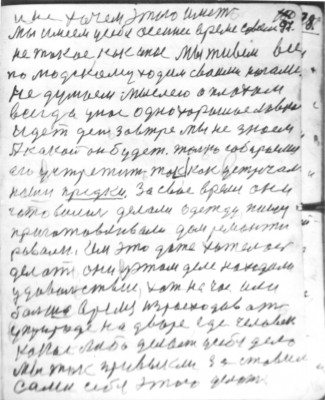 и не хочем этого иметь
Мы имеем у себя осеннее время совсем
не такое как иное Мы живем все
по людскому ходим своими ногами
не думаем мыслею о плохом
всегда у нас одно хорошее
идет день завтра мы не знаем
А какой он будет. только собираемся
его встретить, так как встречали
наши предки. За свое время они
готовились делали одежду, пищу
приготавливали дом ремонти
ровали. Им это даже хотелось
делать они в этом деле находили
удовольствие, хотя не час или
больше время израсходовать
у природе на дворе где человек
какое либо делает у себя дело
Мы так привыкли, заставили
сами себя этого делать